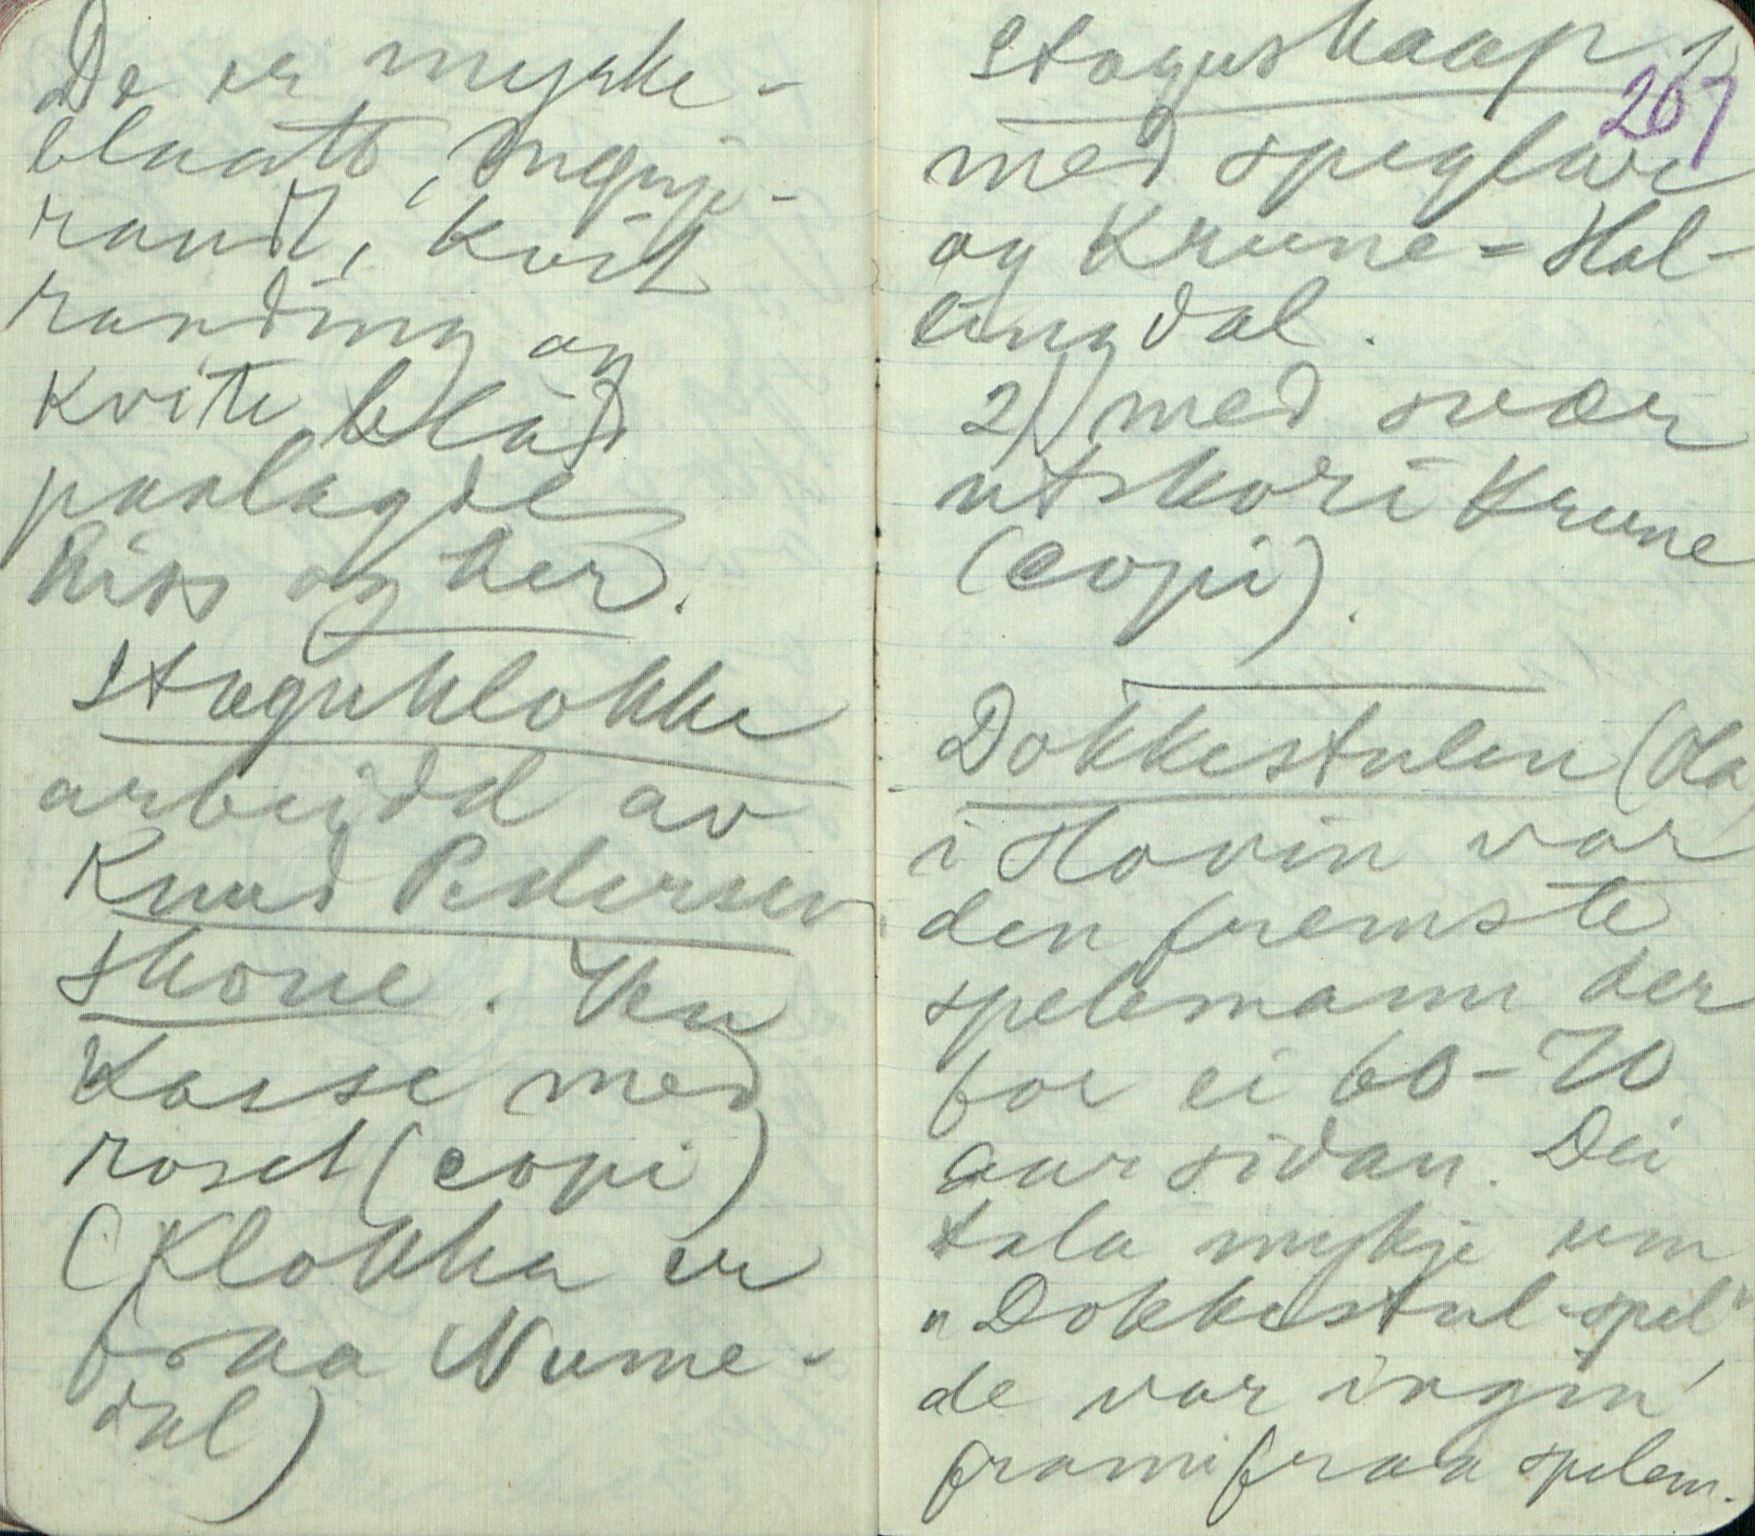 De er myrke-
blaatt,
rand, kvit
randing og
kvite blad
paalagde
hiss og her.
Stoguklokke
arbeidd av
Knud Pedersen
Skone. Ven
Kasse med
roset (copi)
(Klokka er
fraa Nume-
dal)
Stoguskaap 1)
267
med speglar
og Krune = Hal-
lingdal.
2) med svær
utskori Krune
(copi).
Dokkestulen (Ola)
i Hovin var
den fremste
spelemann der
for ei 60-70
aar sidan. Dei
tala mykje um
"Dokkestul-spel"
de var ingin
framifraa spelem.